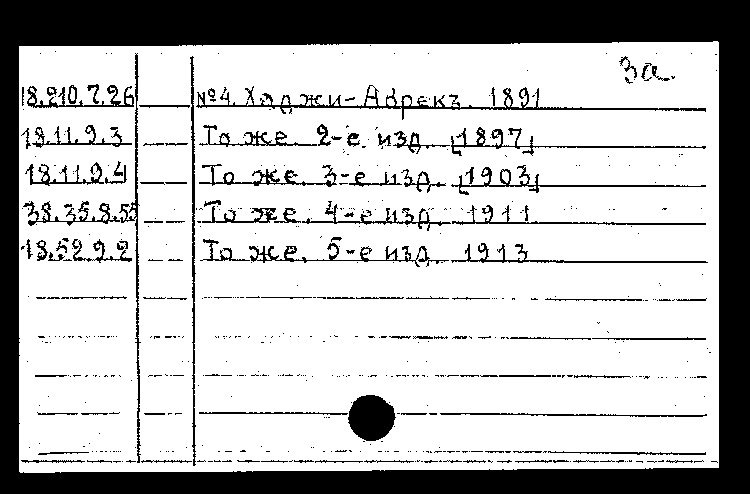 3а.
18.210.7.26 №4. Хаджи-Абрекъ. 1891
18.11.9.3 То же. 2-е. изд. [1897]
18.11.9.4 То же. 3-е изд. [1903]
38.35.8.55 То же. 4-е изд. 1911
18.52.9.2 То же. 5-е изд. 1913